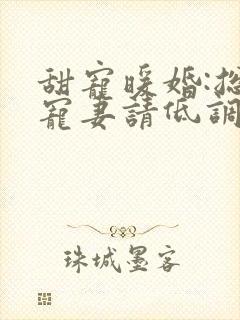 甜寵暖婚:總
寵妻請低調
珠城墨客